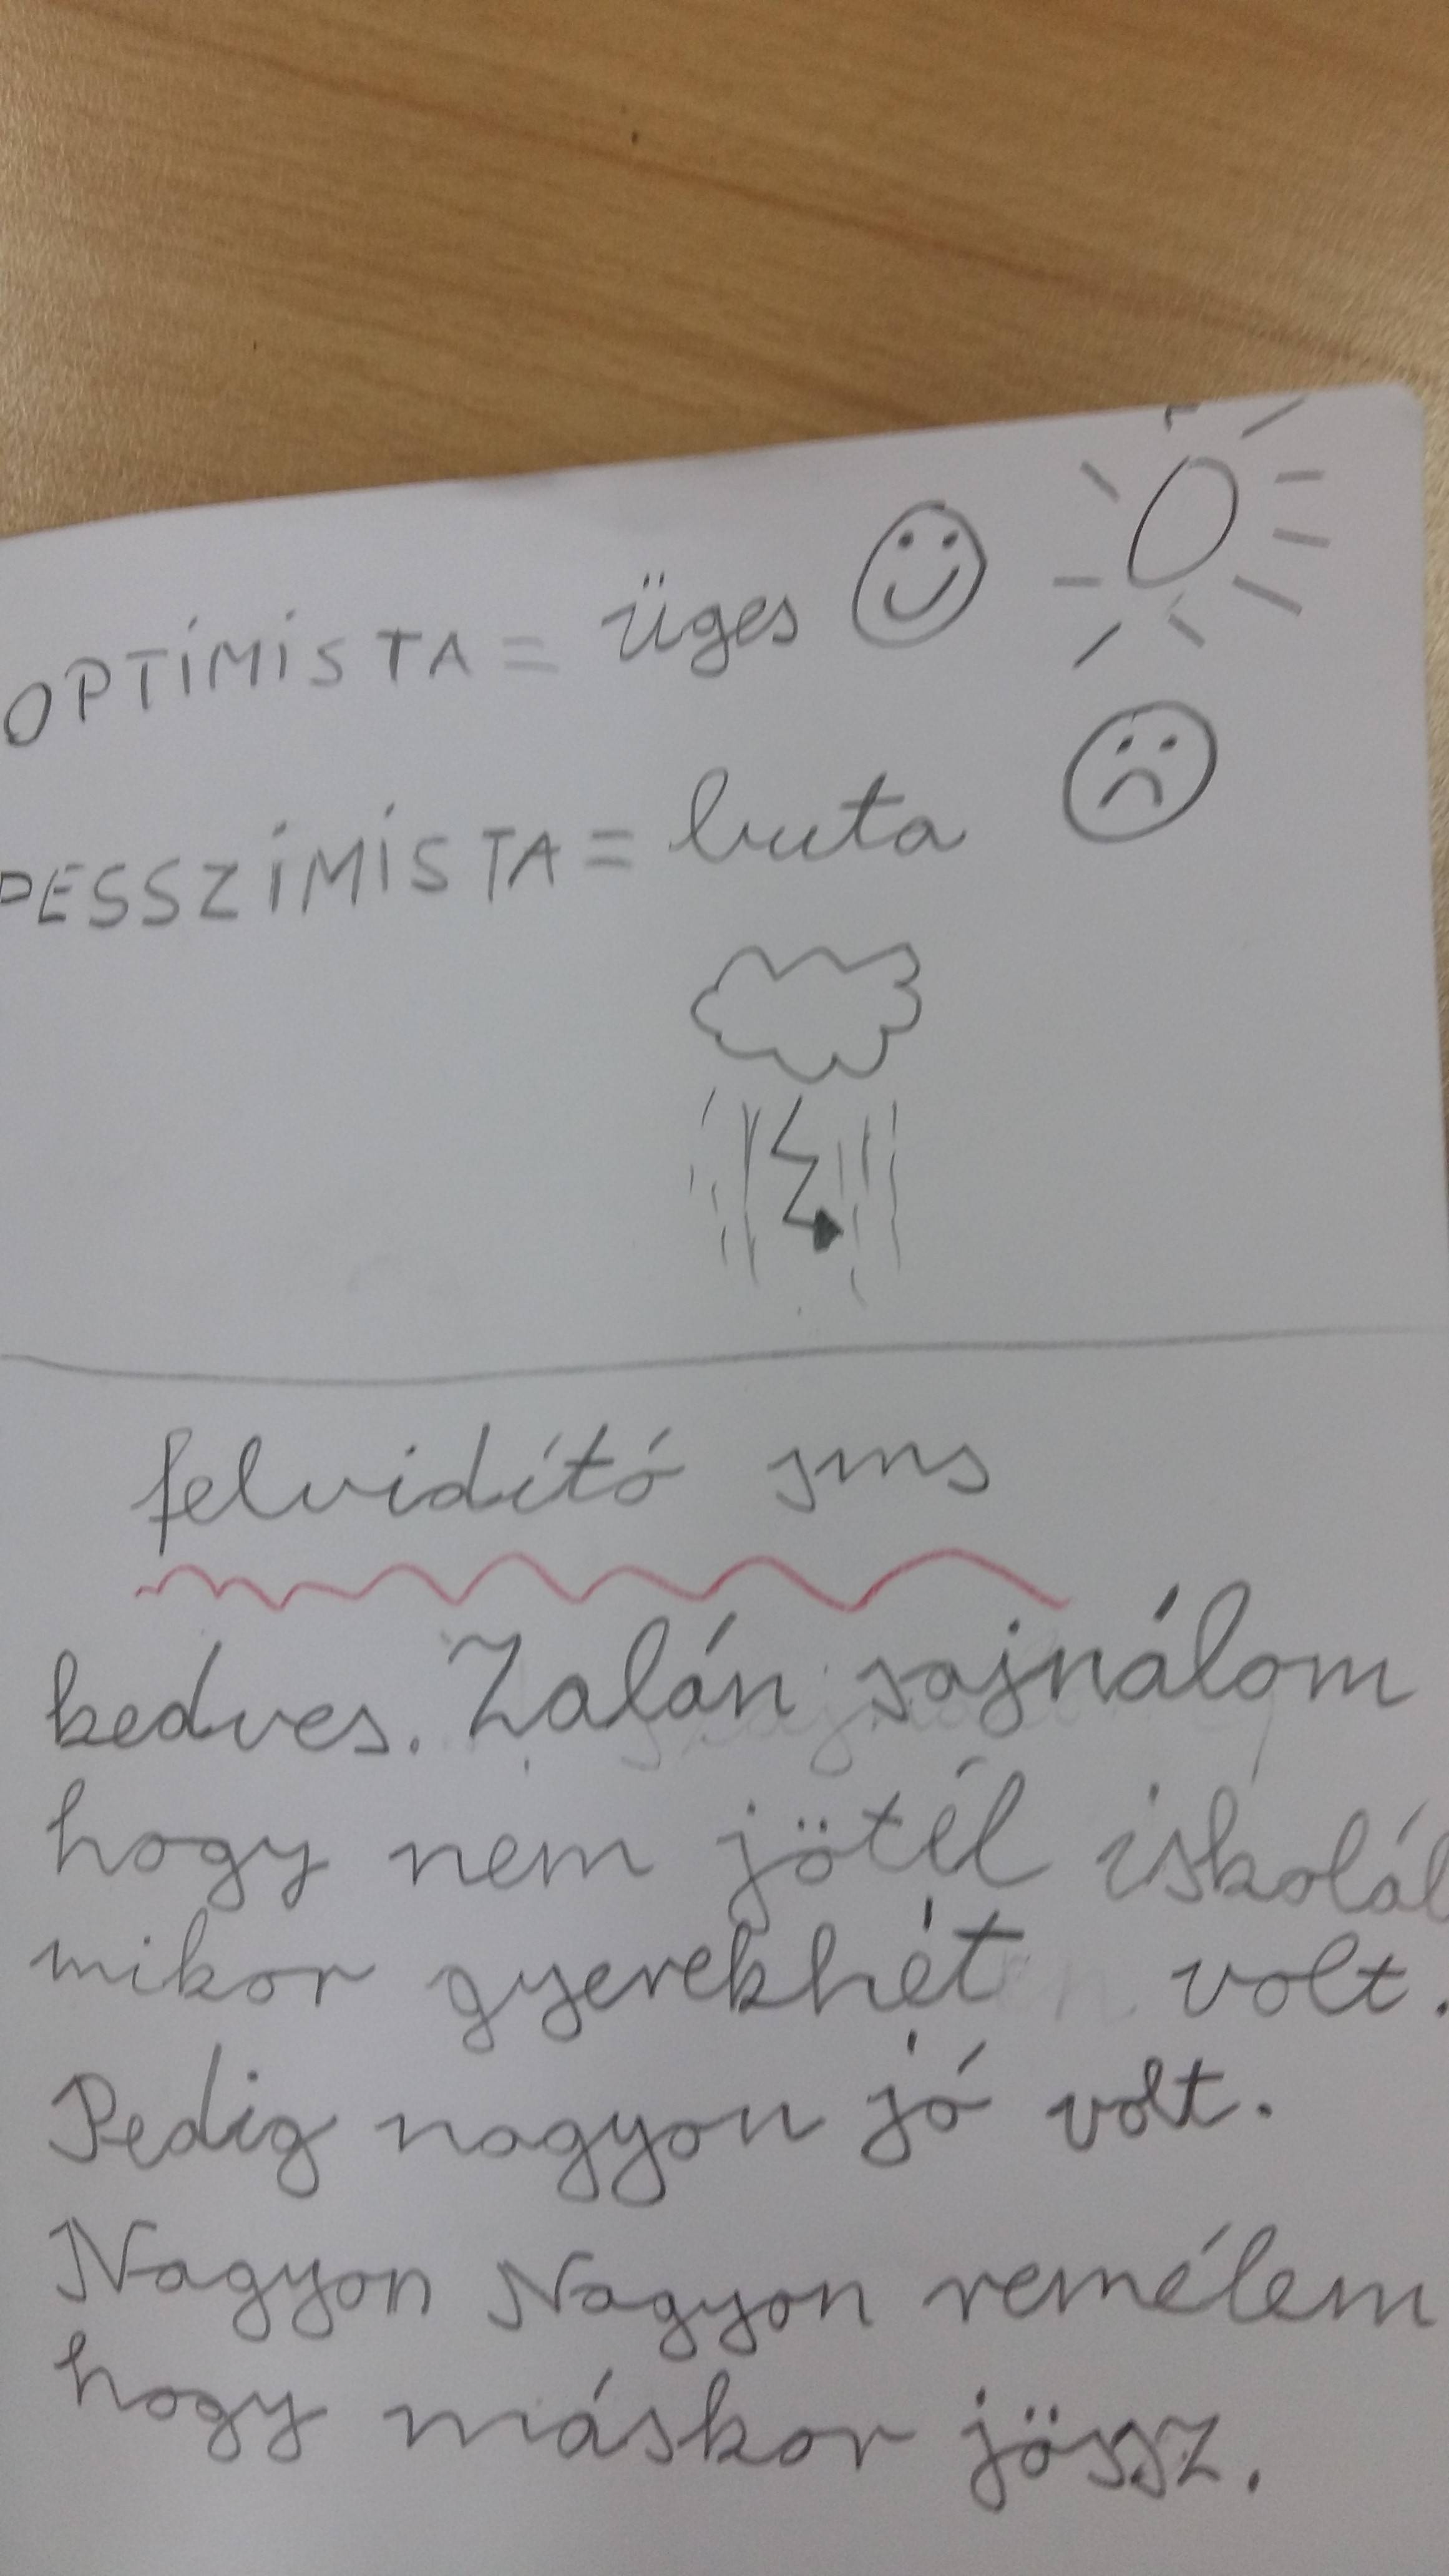 OPTIMISTA = üges
PESSZIMISTA = buta
felvidító sms
kedves. Zalán sajnálom
hogy nem jötél iskolá
mikor gyerekhét volt.
Pedig nagyon jó volt.
Nagyon Nagyon remélem
hogy máskor jössz.